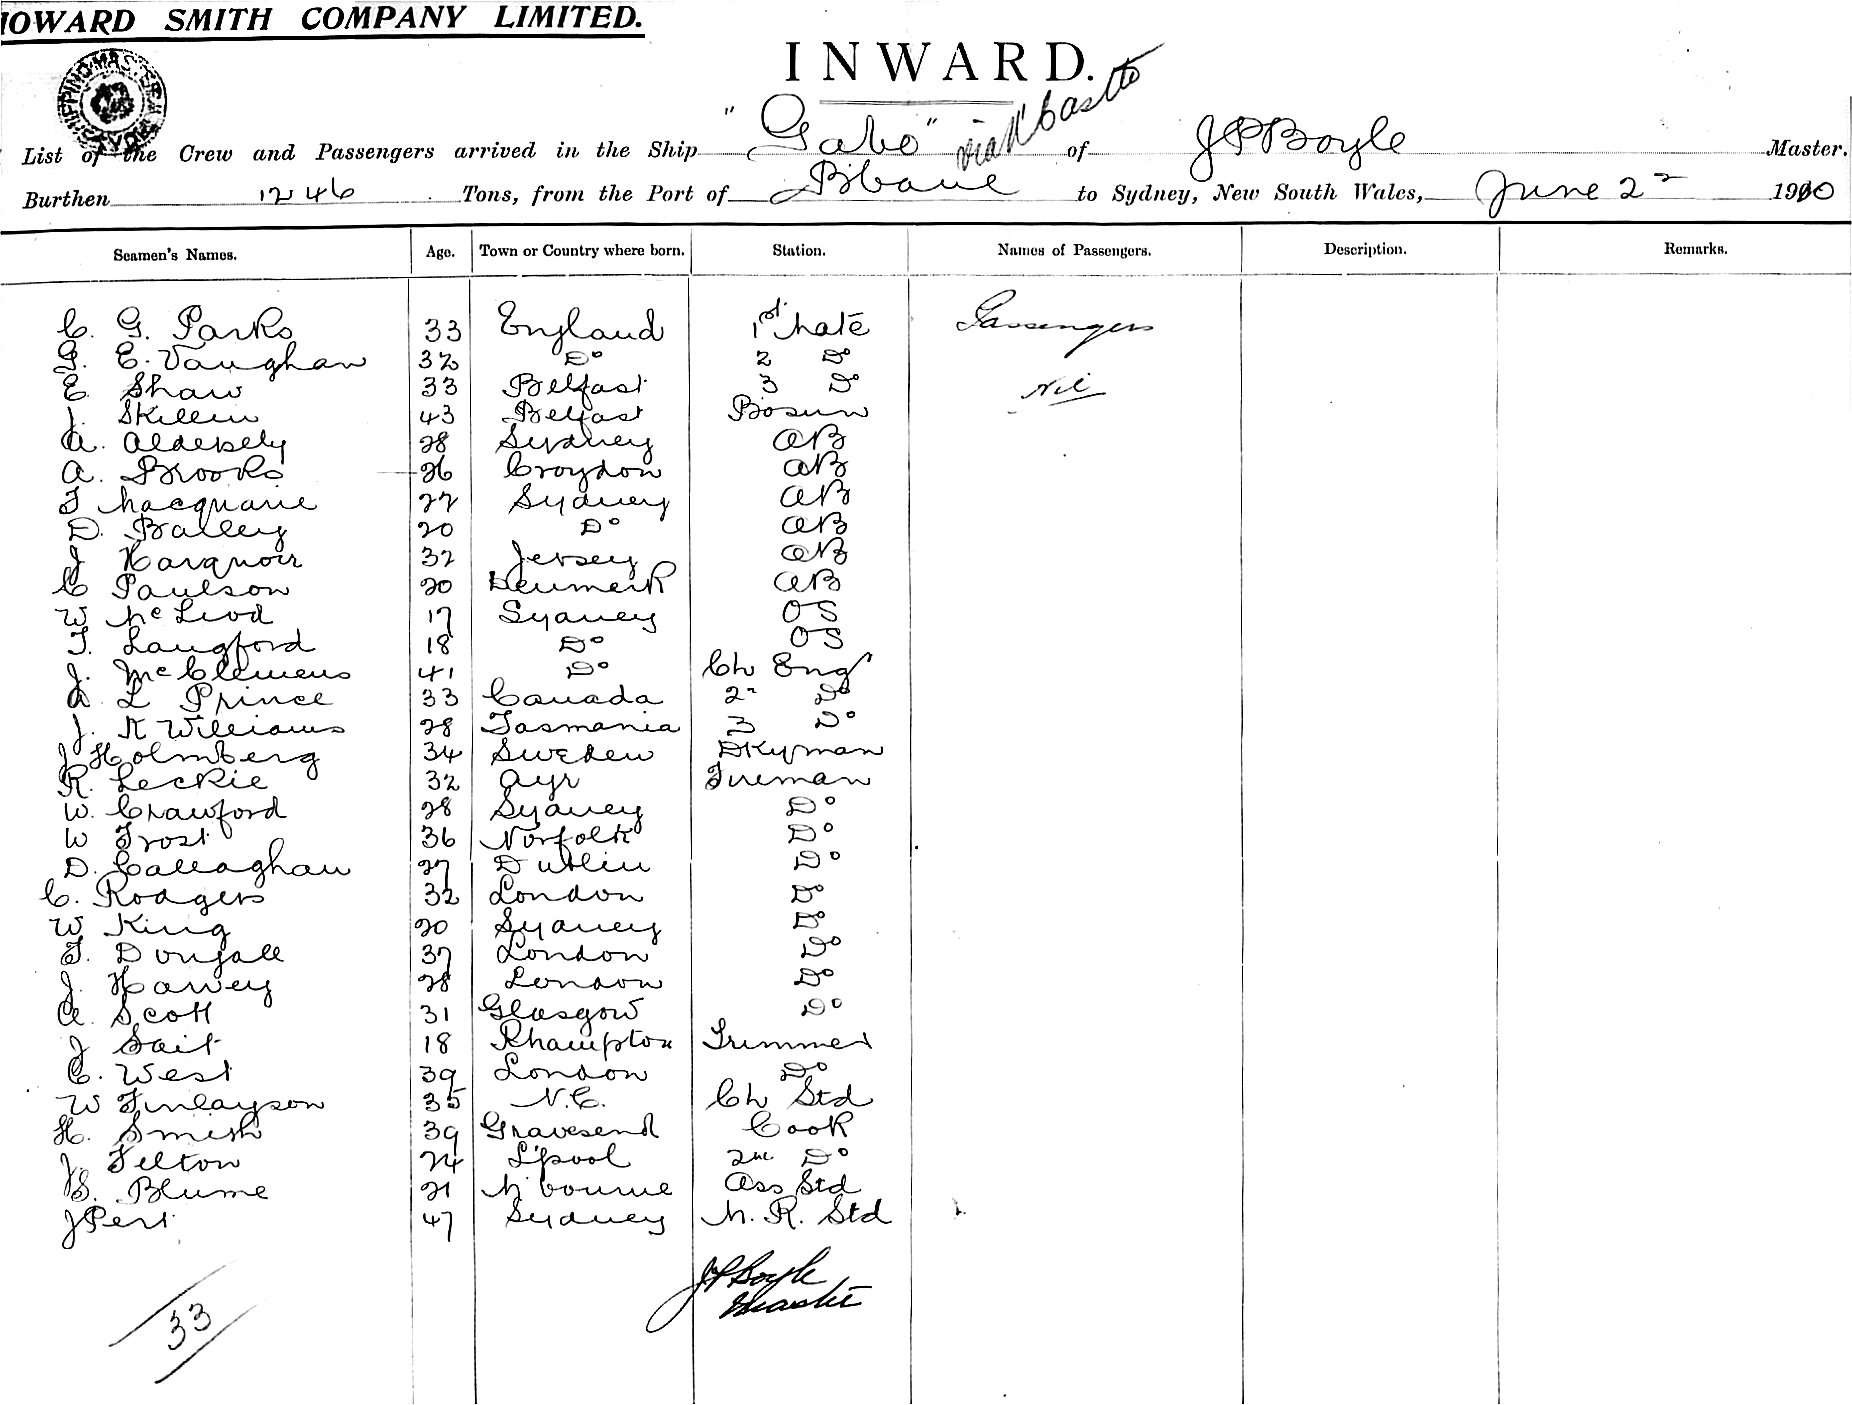 HOWARD SMITH COMPANY LIMITED.
INWARD.
List of the Crew and Passengers arrived in the Ship "Gabo" via N'Castle of J P Boyle Master.
Burthen 1246 Tons, from the Port of B'bane to Sydney, New South Wales, June 2nd 1910
Seamen's Names. Age. Town or Country where born. Station. Names of Passengers. Description. Remarks.
C. G. Parks 33 England 1st Mate Passengers
G. E. Vaughan 32 Do 2 Do
E. Shaw 33 Belfast 3 Do Nil
J. Skillen 43 Belfast Bosun
A. 28 Sydney AB
A. Brooks 26 Croydon AB
T Macquarie 22 Sydney AB
D. Bailey 20 Do AB
J 32 Jersey AB
C Paulson 20 Denmark AB
W McLeod 17 Sydney OS
T. Langford 18 Do OS
J. McClemens 41 Do Ch Engr
A L Prince 33 Canada 2n Do
J. K Williams 28 Tasmania 3 Do
J Holmberg 34 Sweden Dkyman
R. Leckie 32 Ayr Fireman
W. Crawford 28 Sydney Do
W Frost 36 Norfolk Do
D. Callaghan 27 Dublin Do
C. Rodgers 32 London Do
W King 20 Sydney Do
T. Dougall 37 London Do
J. Harvey 28 London Do
A. Scott 31 Glasgow Do
J Sait 18 Rhampton Trimmer
C. West 39 London Do
W Finlayson 35 N.C. Ch Std
H. Smith 39 Gravesend Cook
J. Felton 24 L'pool 2nd Do
S. Blume 21 M'bourne Ass Std
J Pert 47 Sydney M. R. Std
J P Boyle
Master
33